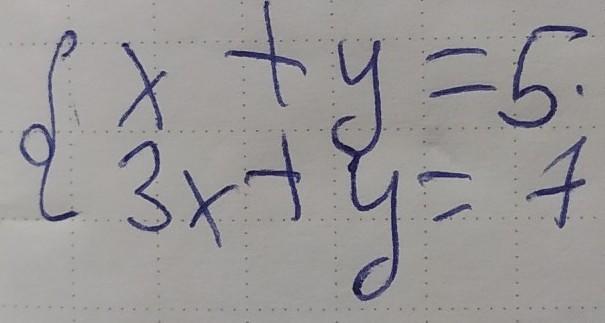 { x + y = 5.
3x + y = 7